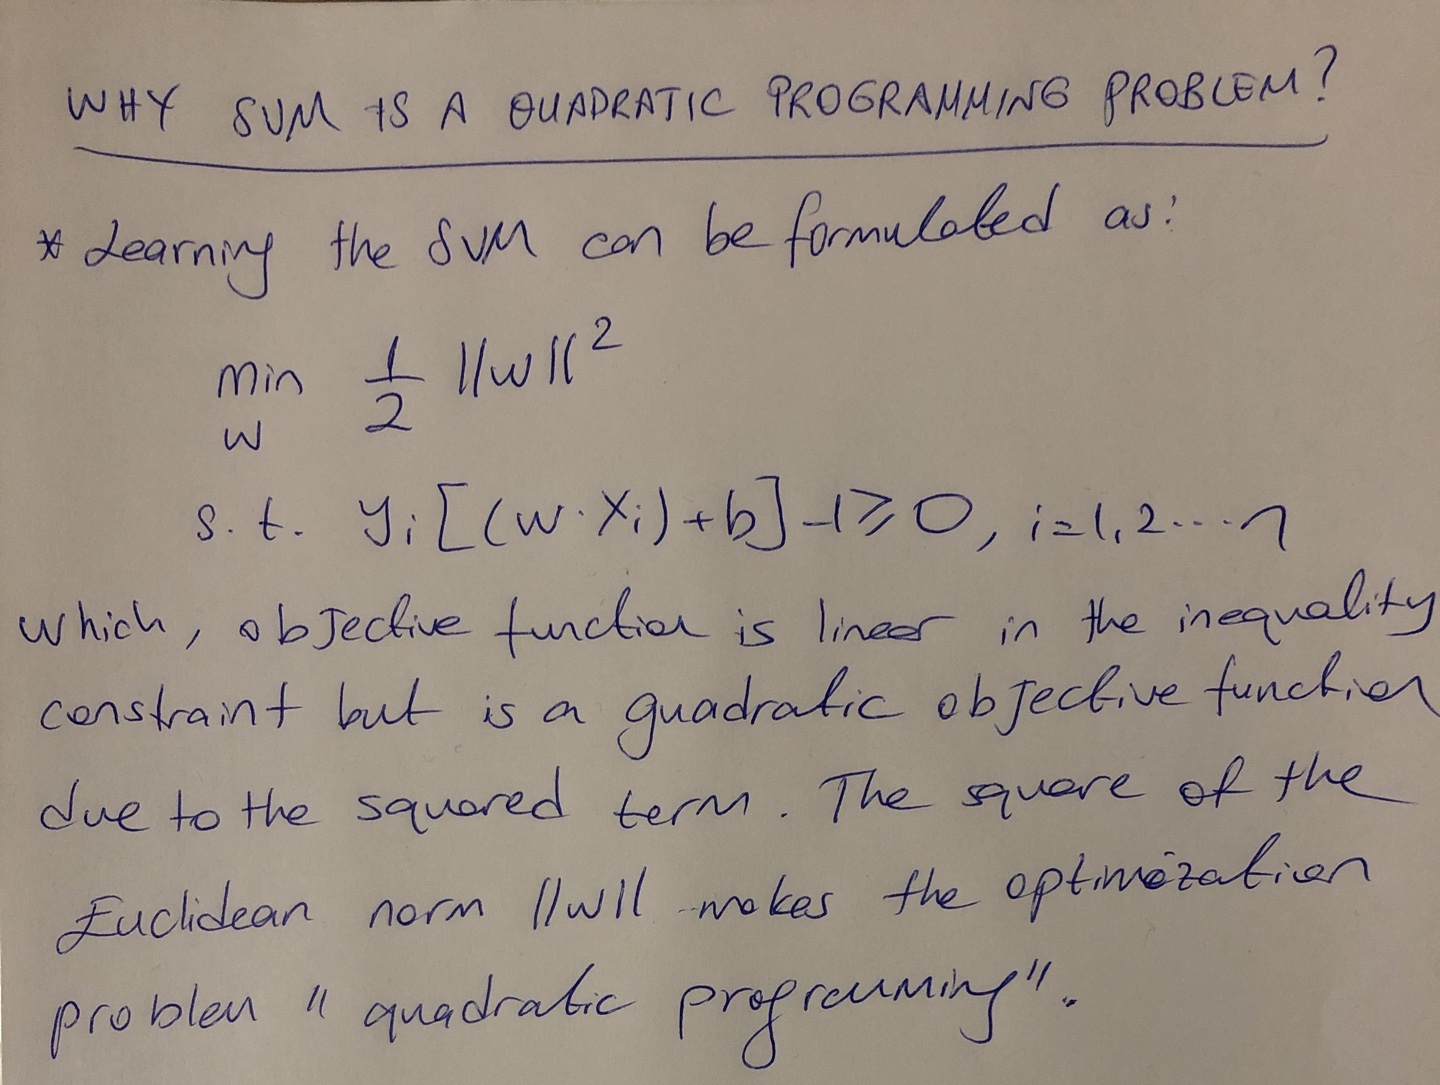 WHY SVM IS A QUADRATIC PROGRAMMING PROBLEM?
* Learning the SVM can be formulated as:
min 1/2 ||w||²
w
s.t. yi[(w·xi)+b]-1≥0, i=1,2...n
which, objective function is linear in the inequality
constraint but is a quadratic objective function
due to the squared term. The square of the
Euclidean norm ||w|| makes the optimization
problem "quadratic programming".